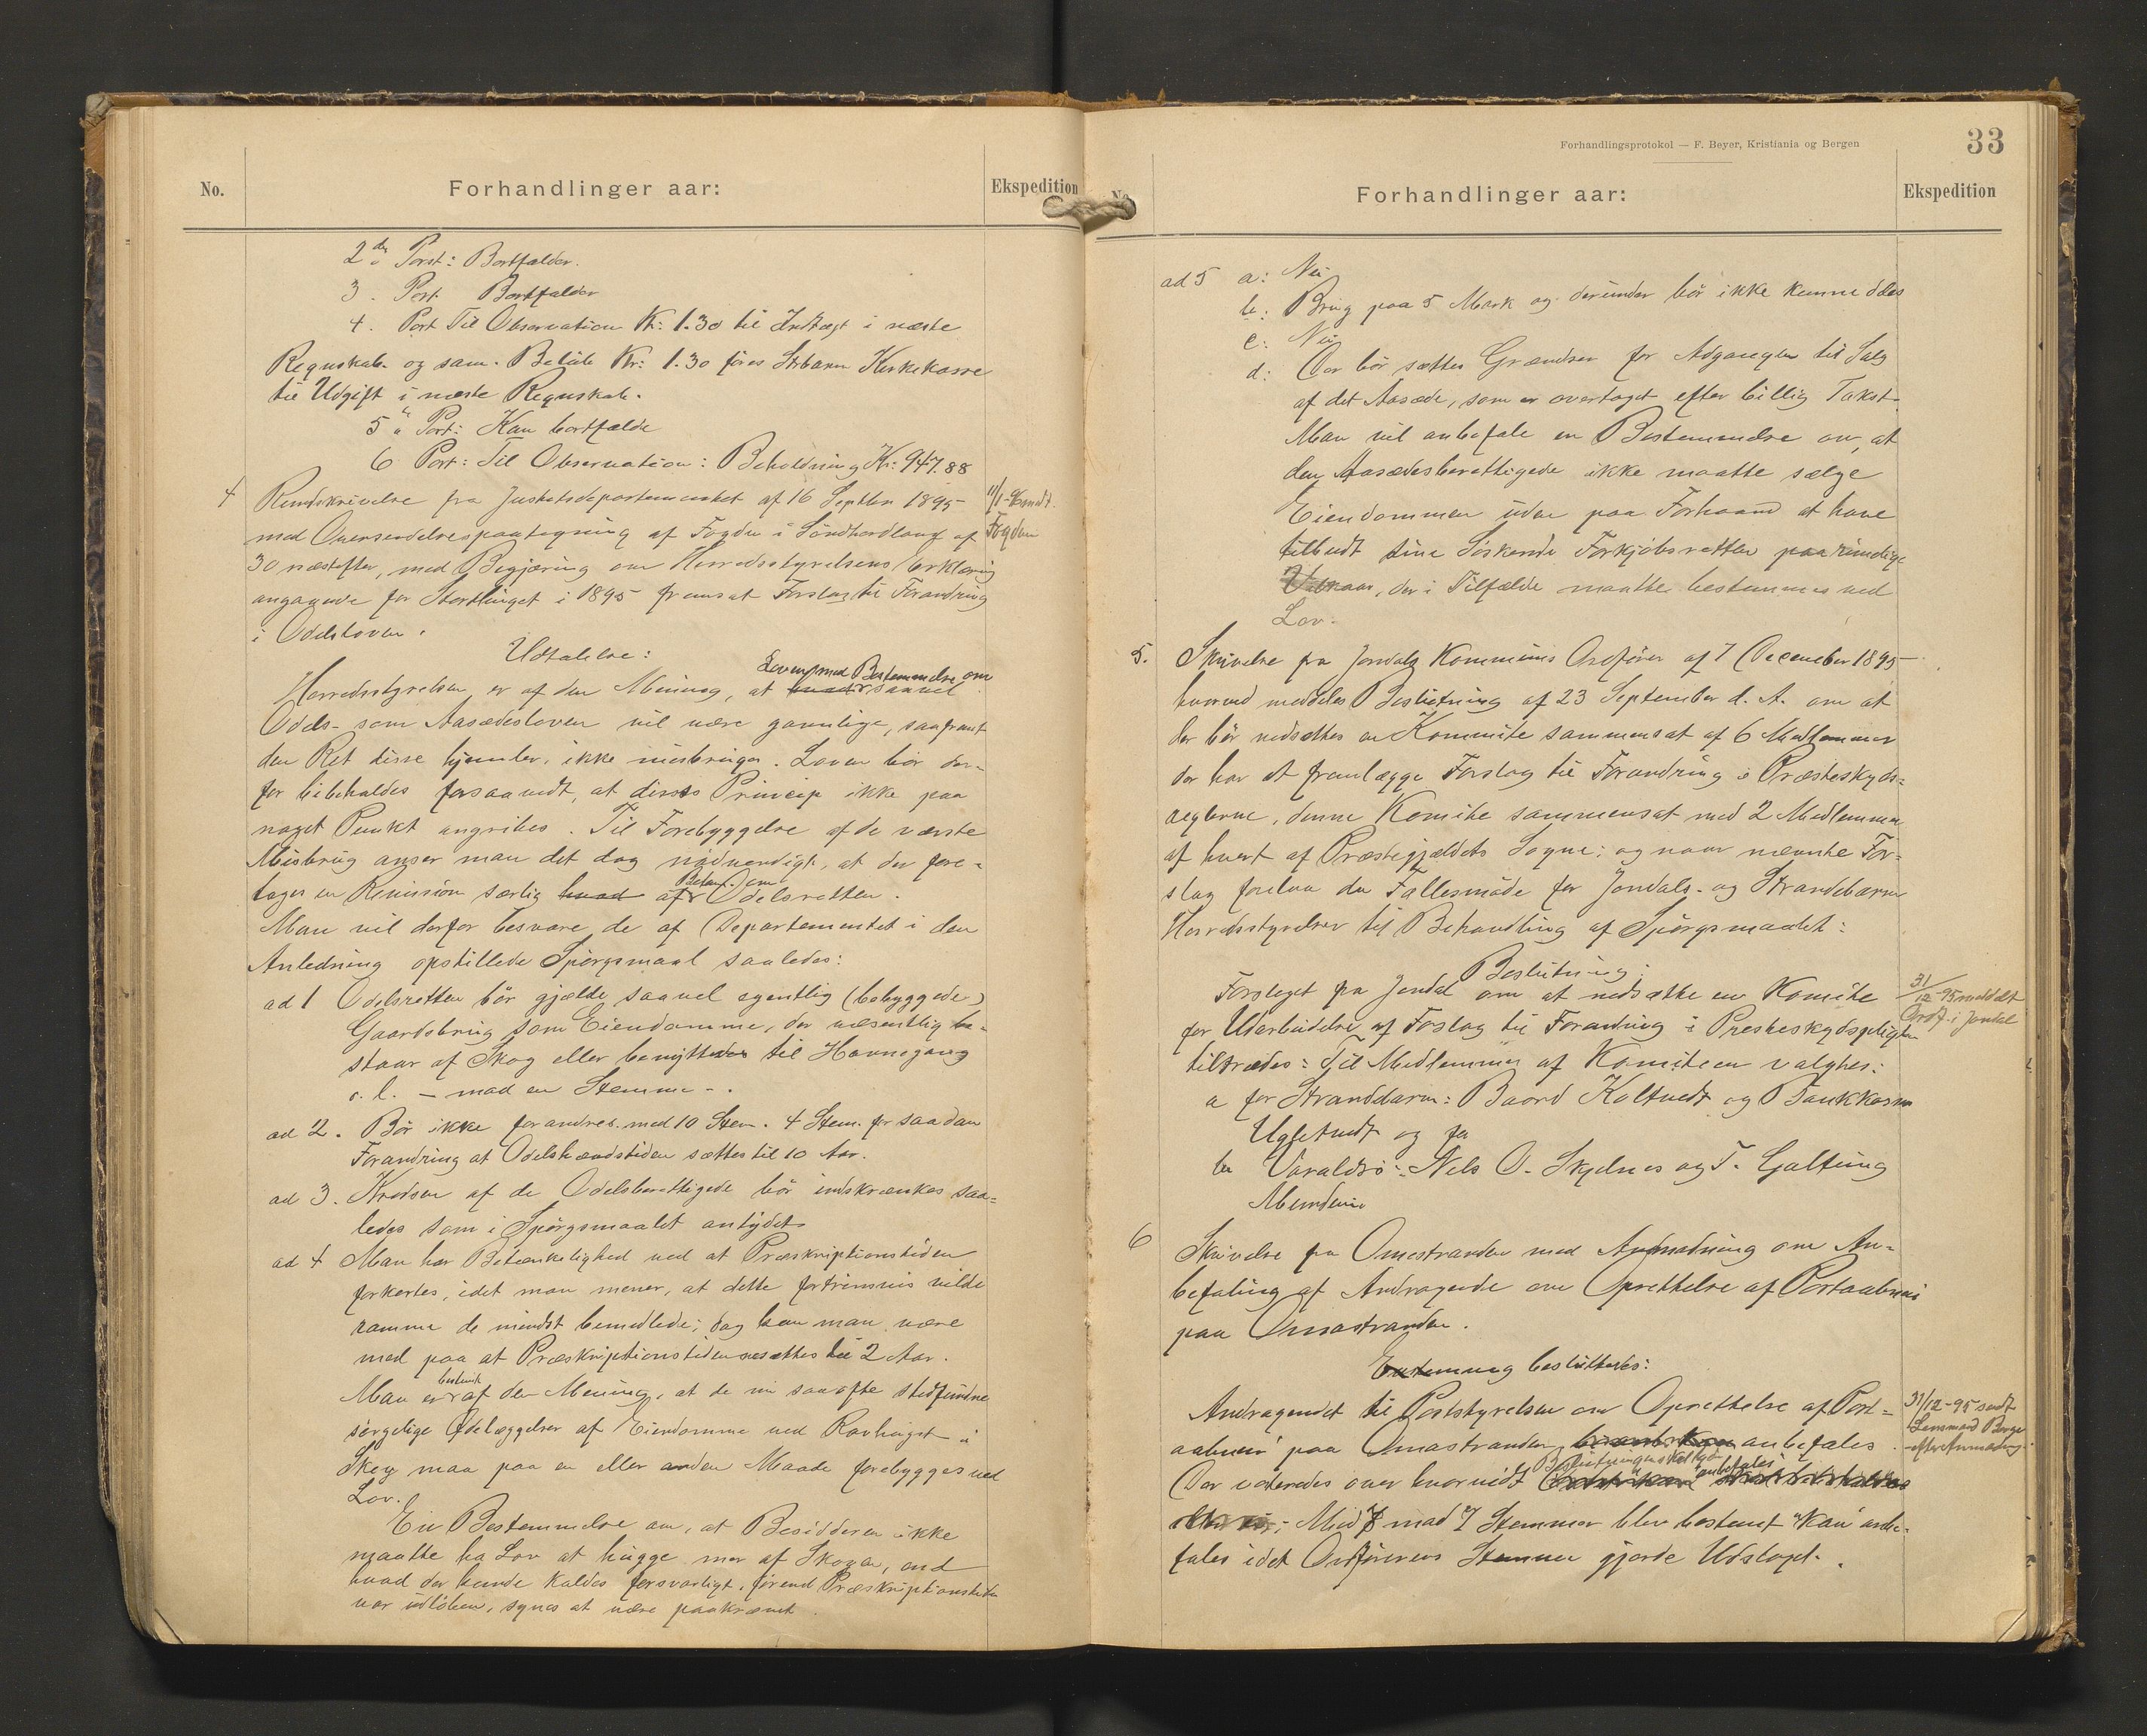 No.
Forhandlinger aar:
Ekspedition
2den Post: Bortfalder.
3. Post. Bortfalder
4. Post Til Observation Kr: 1.30 til Indtægt i næste
Regnskab og sam. Beløb Kr: 1.30 føres Strbarm Kirkekasse
til Udgift i næste Regnskab.
5 " Post: Kan bortfalde
6 Post: Til Observation: Beholdning Kr: 947.88
4 Rundskrivelse fra Justitsdepartementet af 16 Septbr 1895
11/1-96 medt.
med Oversendelsespaategning af Fogden i Søndhordland af
Fogden
30 næstefter, med Begjæring om Herredsstyrelsens Erklæring
angaaende for Storthinget i 1895 fremsat Forslag til Forandring
i Odelsloven.
Udtalelse:
Loven med Bestemmelse om
Herredsstyrelsen er af den Mening, at saavel
Odels- som Aasædesloven vil være gavnlige, saafremt
den Ret disse hjemler, ikke misbruges. Loven bør der-
for bibeholdes forsaavidt, at disses Princip ikke paa
noget Punkt angribes. Til Forebyggelse af de værste
Misbrug anser man det dog nødvendigt, at der fore-
Best. om
tages en Revision særlig hvad af Odelsretten.
Man vil derfor besvare de af Departementet i den
Anledning opstillede Spørgsmaal saaledes:
ad 1 Odelsretten bør gjælde saavel egentlig (bebyggede)
Gaardsbrug som Eiendomme, der væsentlig be-
staar af Skog eller benyttedes til Havnegang
o. l. — mod en Stemme -.
ad 2. Bør ikke forandres. med 10 Stem. 4 Stem. for saadan
Forandring at Odelshævdstiden sættes til 10 Aar.
ad 3. Kredsen af de Odelsberettigede bør indskrænkes saa-
ledes som i Spørgsmaalet antydet
ad 4 Man har Betænkelighed ved at Præskriptionstiden
forkortes, idet man mener, at dette fortrinsvis vilde
ramme de mindst bemedlede; dog kan man være
med paa at Præskriptionstiden nedsættes til 2 Aar.
bestemt
Man er af den Mening, at de nu saa ofte stedfundne
sørgelige Ødelæggelser af Eiendomme ved Rovhugst i
Skog maa paa en eller anden Maade forebygges ved
Lov.
En Bestemmelse om, at Besidderen ikke
maatte ha Lov at hugge mer af Skogen, end
hvad der kunde kaldes forsvarligt, førend Præskriptionstiden
var udløben, synes at være paakrævet.
Forhandlingsprotokol — F. Beyer, Kristiania og Bergen
33
No.
Forhandlinger aar:
Ekspedition
ad 5 a: Nei
b: Brug paa 5 Mark og derunder bør ikke kunne deles
c: Nei
d: Der bør sættes Grændser for Adgangen til Salg
af det Aasæde, som er overtaget efter billig Takst.
Man vil anbefale en Bestemmelse om, at
den Aasædesberettigede ikke maatte sælge
Eiendommen uden paa Forhaand at have
tilbudt sine Søskende Forkjøbsretten paa rimelige
Vilkaar, der i Tilfælde maatte bestemmes ved
Lov.
5. Skrivelse fra Jondals Kommunes Ordfører af 7 December 1895
hvorved meddeles Beslutning af 23 September d. A. om at
der bør nedsættes en Kommite sammensat af 6 Medlemmer
der har at fremlægge Forslag til Forandring i Præsteskyds-
reglerne, denne Komite sammensat med 2 Medlemmer
af hvert af Præstegjældets Sogne; og naar nævnte For-
slag forelaa da Fællesmøde for Jondals- og Strandebarm
Herredsstyrelser til Behandling af Spørgsmaalet:
Beslutning:
Forslaget fra Jondal om at nedsætte en Komite
31/12-95 meddelt
for Udarbeidelse af Foslag til Forandring i Presteskydspligten
Ordf. i Jondal
tiltrædes: Til Medlemmer af Komiteen valgtes:
a for Strandbarm: Baard Koltvedt og
b Varaldsø: Nels O. Skjelnes og T. Galtung
6 Skrivelse fra Omestranden med Anmodning om An-
befaling af Andragende om Oprettelse af Postaabneri
paa Omastranden.
besluttedes:
Andragendet til Poststyrelsen om Oprettelse af Post-
31/12-95 sendt
Lensmand Berge
aabneri paa Omastranden anbefales.
Der voteredes over hvorvidt
anbefales
Med 7 mod 7 Stemmer blev bestemt "kan" anbe-
fales idet Ordførerens Stemme gjorde Udslaget.